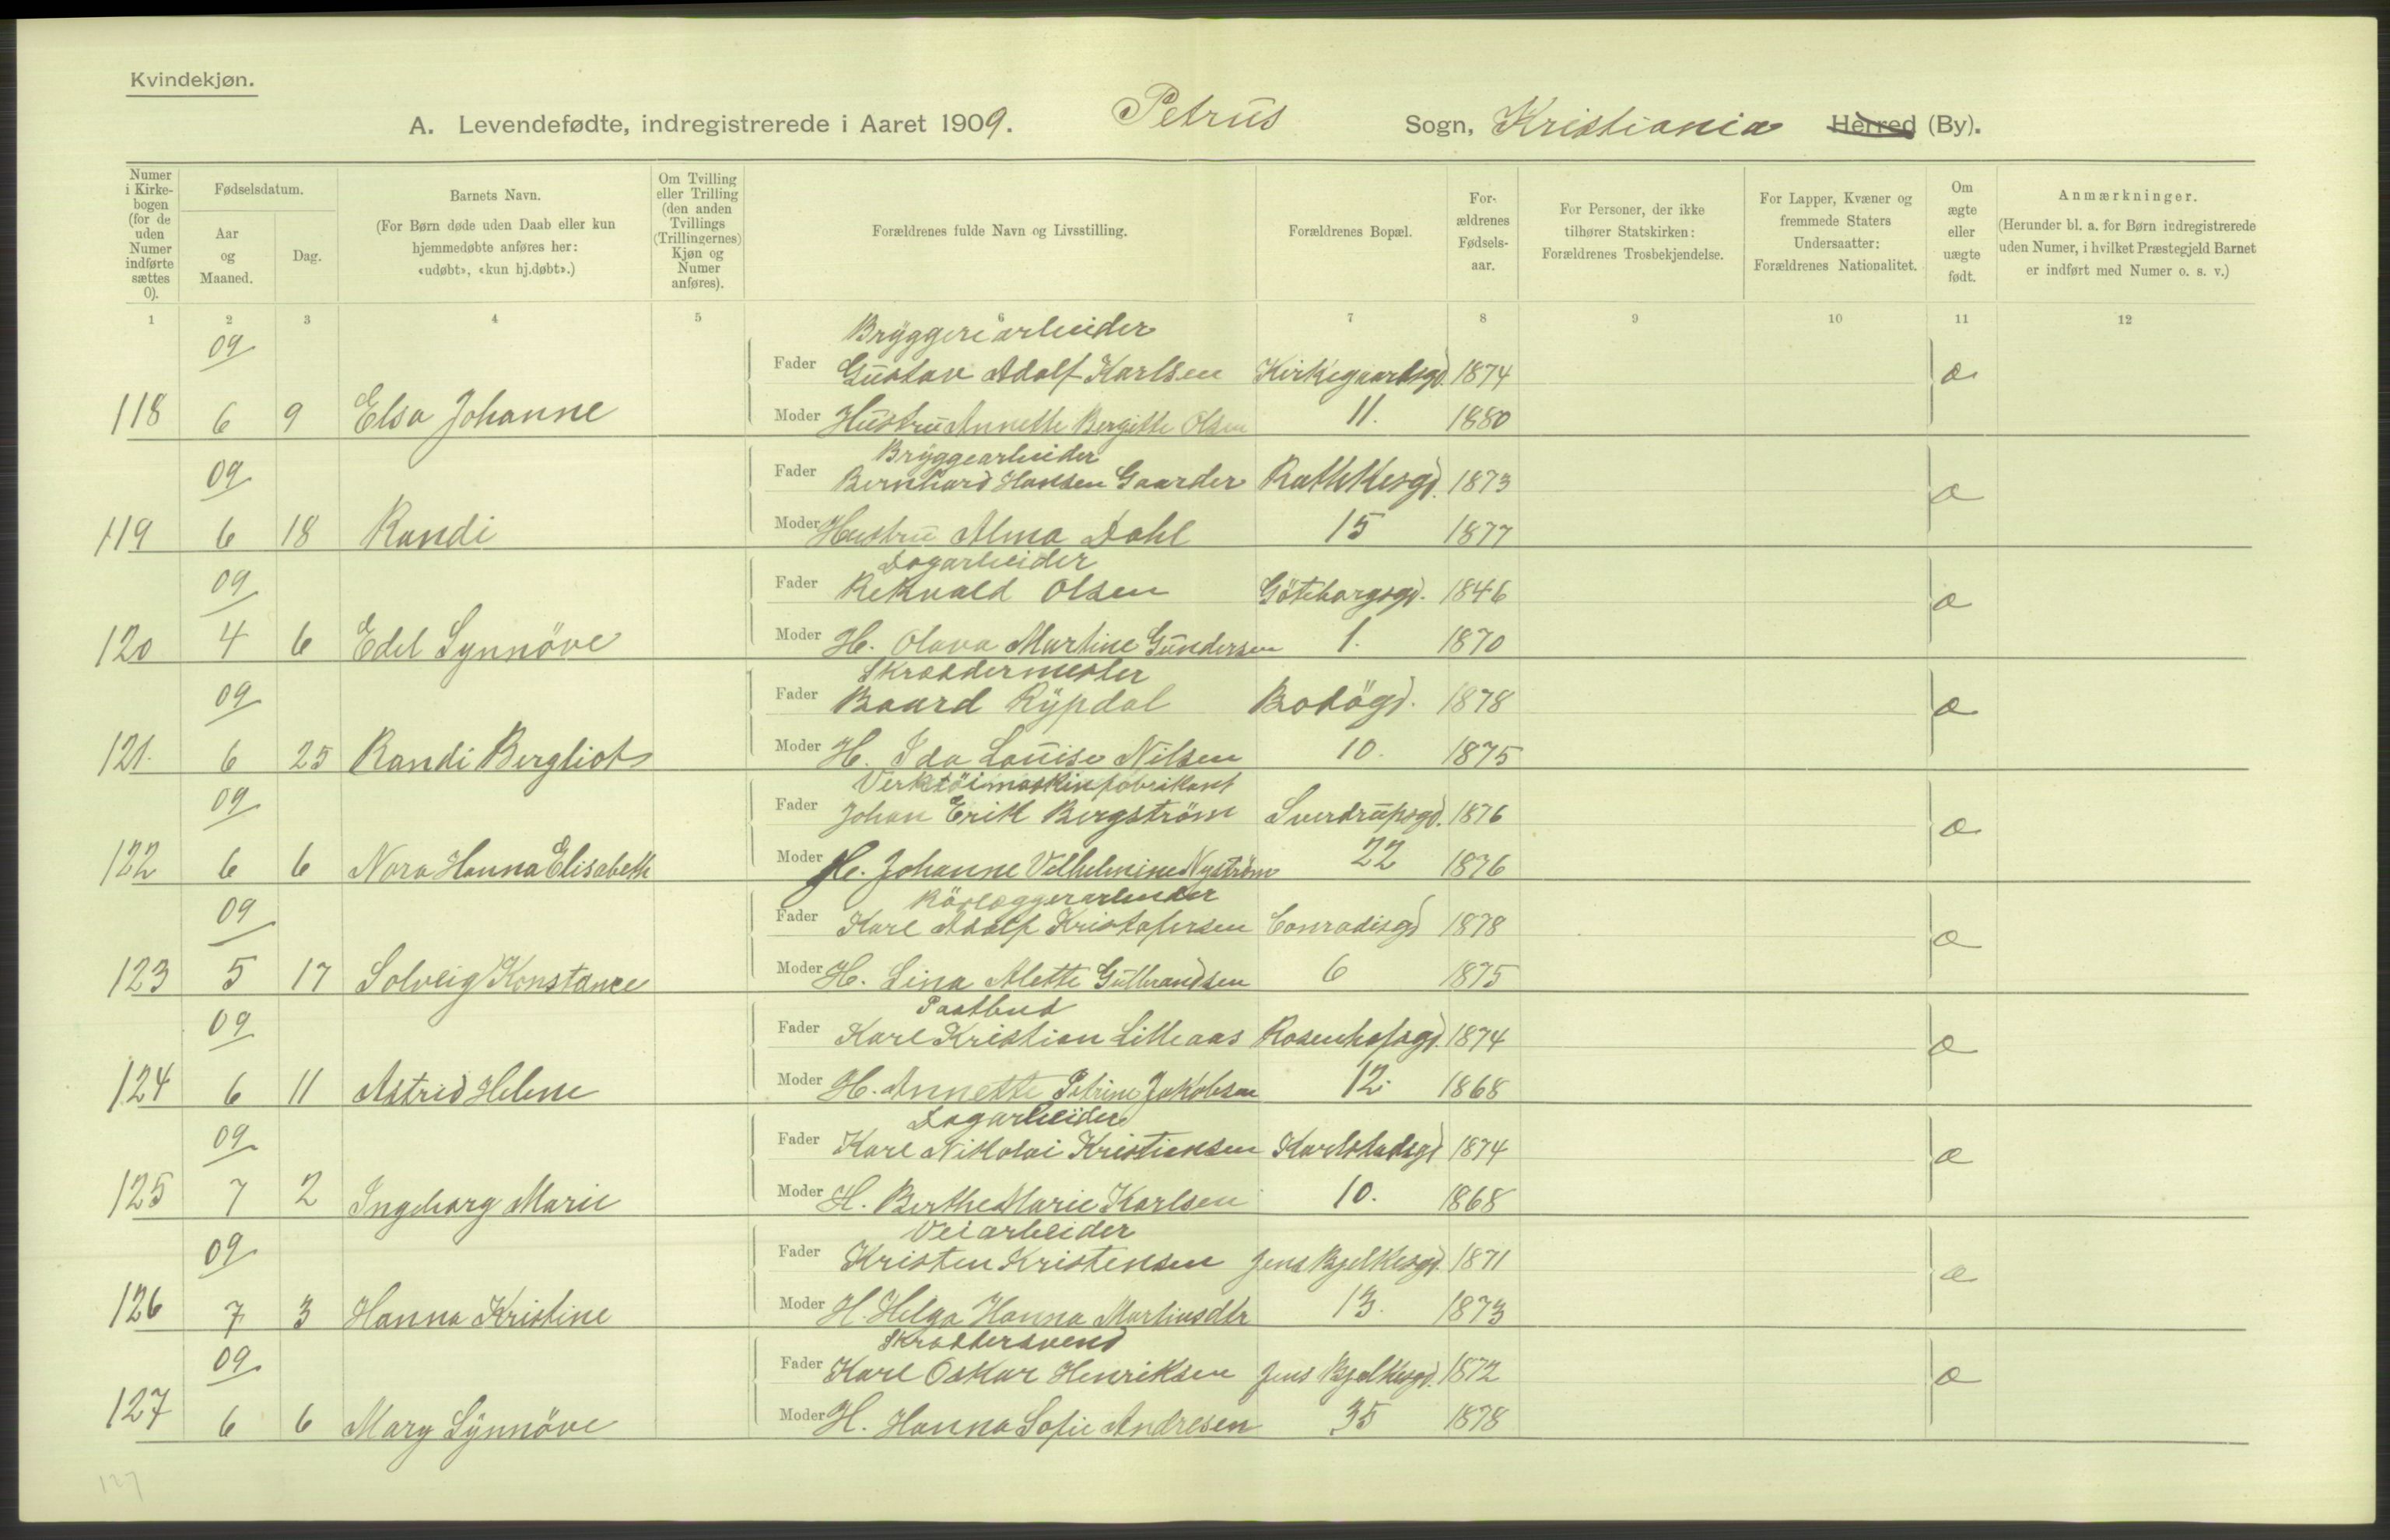 Kvindekjøn.
A. Levendefødte, indregistrerede i Aaret 1909. Petrus Sogn, Kristiania Herred (By).
Numer i Kirkebogen (for de uden Numer indførte sættes 0).
Fødselsdatum.
Aar og Maaned.
Dag.
Barnets Navn.
(For Børn døde uden Daab eller kun hjemmedøbte anføres her: «udøbt», «kun hj.døbt».)
Om Tvilling eller Trilling (den anden Tvillings (Trillingernes) Kjøn og Numer anføres).
Forældrenes fulde Navn og Livsstilling.
Forældrenes Bopæl.
Forældrenes Fødselsaar.
For Personer, der ikke tilhører Statskirken: Forældrenes Trosbekjendelse.
For Lapper, Kvæner og fremmede Staters Undersaatter: Forældrenes Nationalitet.
Om ægte eller uægte født.
Anmærkninger.
(Herunder bl. a. for Børn indregistrerede uden Numer, i hvilket Præstegjeld Barnet er indført med Numer o. s. v.)
1 2 3 4 5 6 7 8 9 10 11 12
Bryggeriarbeider
09 Fader Gustav Adolf Karlsen Kirkegaardsgd. 1874 æ
118 6 9 Elsa Johanne Moder Hustru Annette Bergitte Olsen 11. 1880
Bryggearbeider
09 Fader Bernhard Hansen Gaarder Rathkesgd. 1873 æ
119 6 18 Randi Moder Hustru Alma Dahl 15 1877
Dagarbeider
09 Fader Rekvald Olsen Göteborgsgd. 1846 æ
120 4 6 Edel Synnöve Moder H. Olava Martine Gundersen 1. 1870
Skræddermester
09 Fader Baard Rypdal Bodögd. 1878 æ
121. 6 25 Randi Bergliot Moder H. Ida Louise Nilsen 10. 1875
Verktöimaskinfabrikant
09 Fader Johan Erik Bergström Sverdrupsgd. 1876 æ
122 6 6 Nora Hanna Elisabeth Moder H. Johanne Vilhelmine Nyström 22 1876
Rörlæggerarbeider
09 Fader Karl Adolf Kristofersen Conradisgd 1878 æ
123 5 17 Solveig Konstance Moder H. Lina Alette Gulbrandsen 6 1875
Postbud
09 Fader Karl Kristian Lilleaas Rosenhofsgd. 1874 æ
124 6 11 Astrid Helene Moder H. Annette Petrine Jakobsen 12. 1868
Dagarbeider
09 Fader Karl Nikolai Kristiansen Karlstadsgd 1874 æ
125 7 2 Ingeborg Marie Moder H. Berthe Marie Karlsen 10. 1868
Veiarbeider
09 Fader Kristen Kristensen Jens Bjelkesgd. 1871 æ
126 7 3 Hanna Kristine Moder H. Helga Hanna Martinsdtr 13. 1873
Skræddersvend
09 Fader Karl Oskar Henriksen Jens Bjelkesgd. 1872 æ
127 6 6 Mary Synnöve Moder H. Hanna Sofie Andresen 35 1878
127